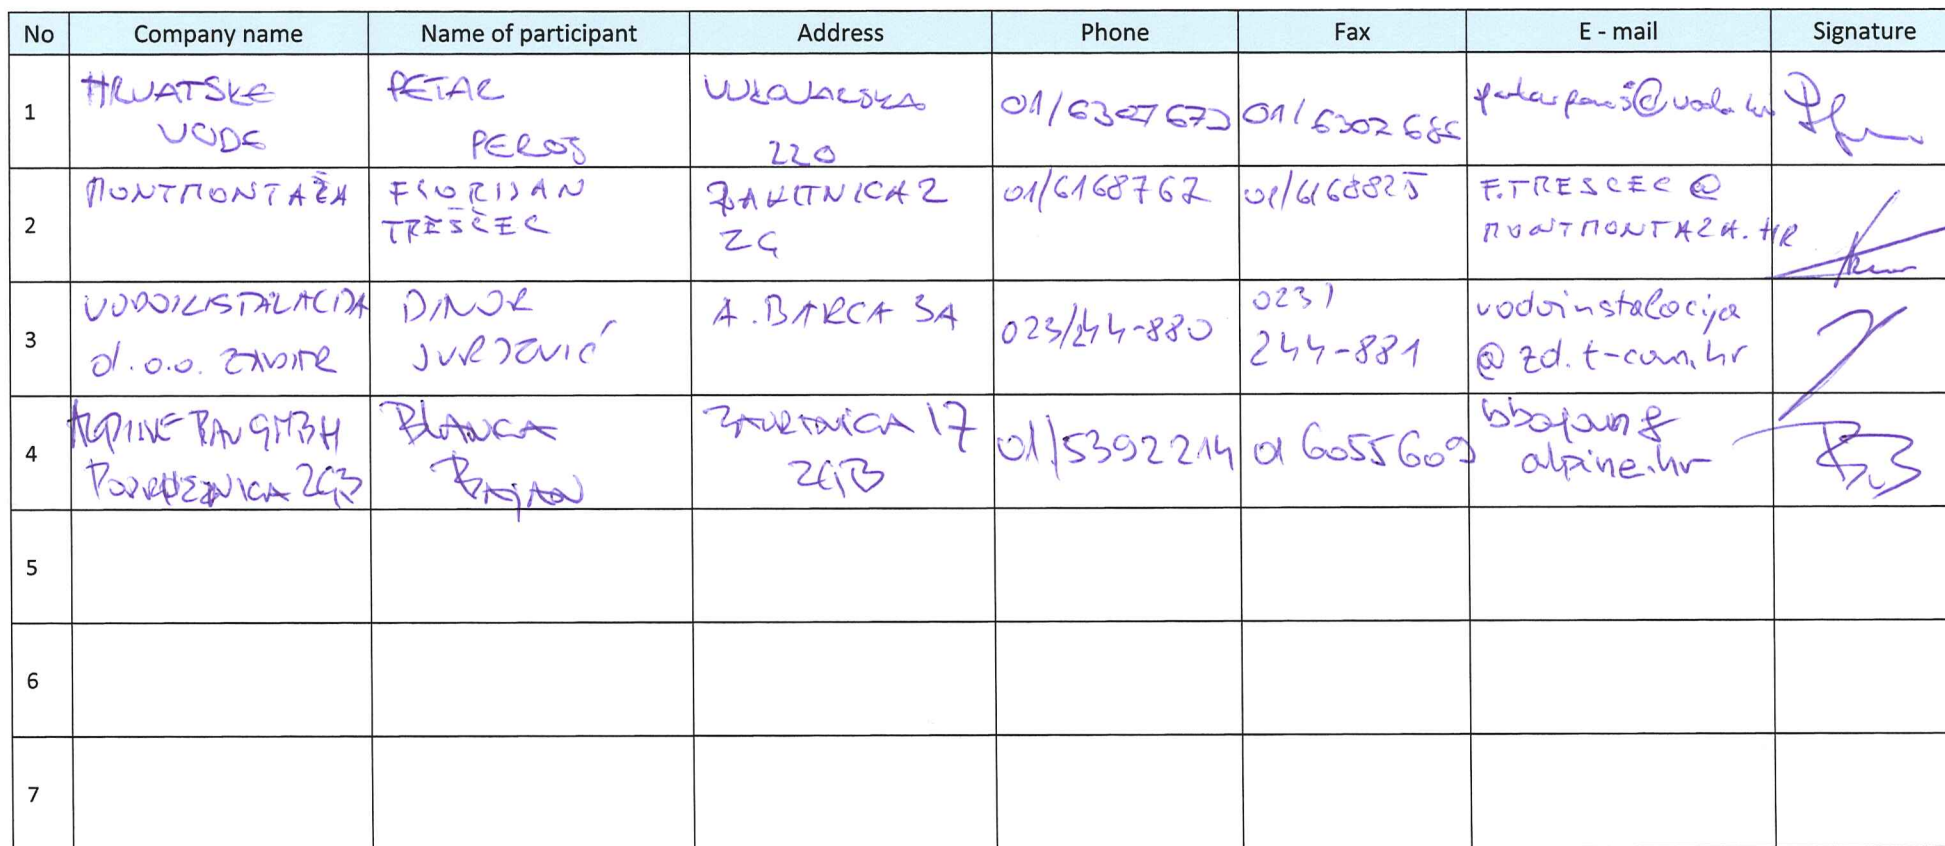 No Company name Name of participant Address Phone Fax E - mail Signature
1 HRVATSKE VODE PETAR PEROŠ VUKOVARSKA 220
2 MONTMONTAŽA FLORIJAN TREŠČEC RAKITNICA 2 ZG 01/6168767 01/6168825 F.TRESCEC@MONTMONTAZA.HR
3 VODOINSTALACIJA d.o.o. ZADAR DINOR JURJEVIĆ A. BARCA 3A 023/244-880 023/244-881 vodoinstalacija@zd.t-com.hr
4 ALPINE BAU GMBH PODRUŽNICA ZGB BLANCA BAJAN 17 ZGB 01/5392214 01 6055609 alpine.hr
5
6
7